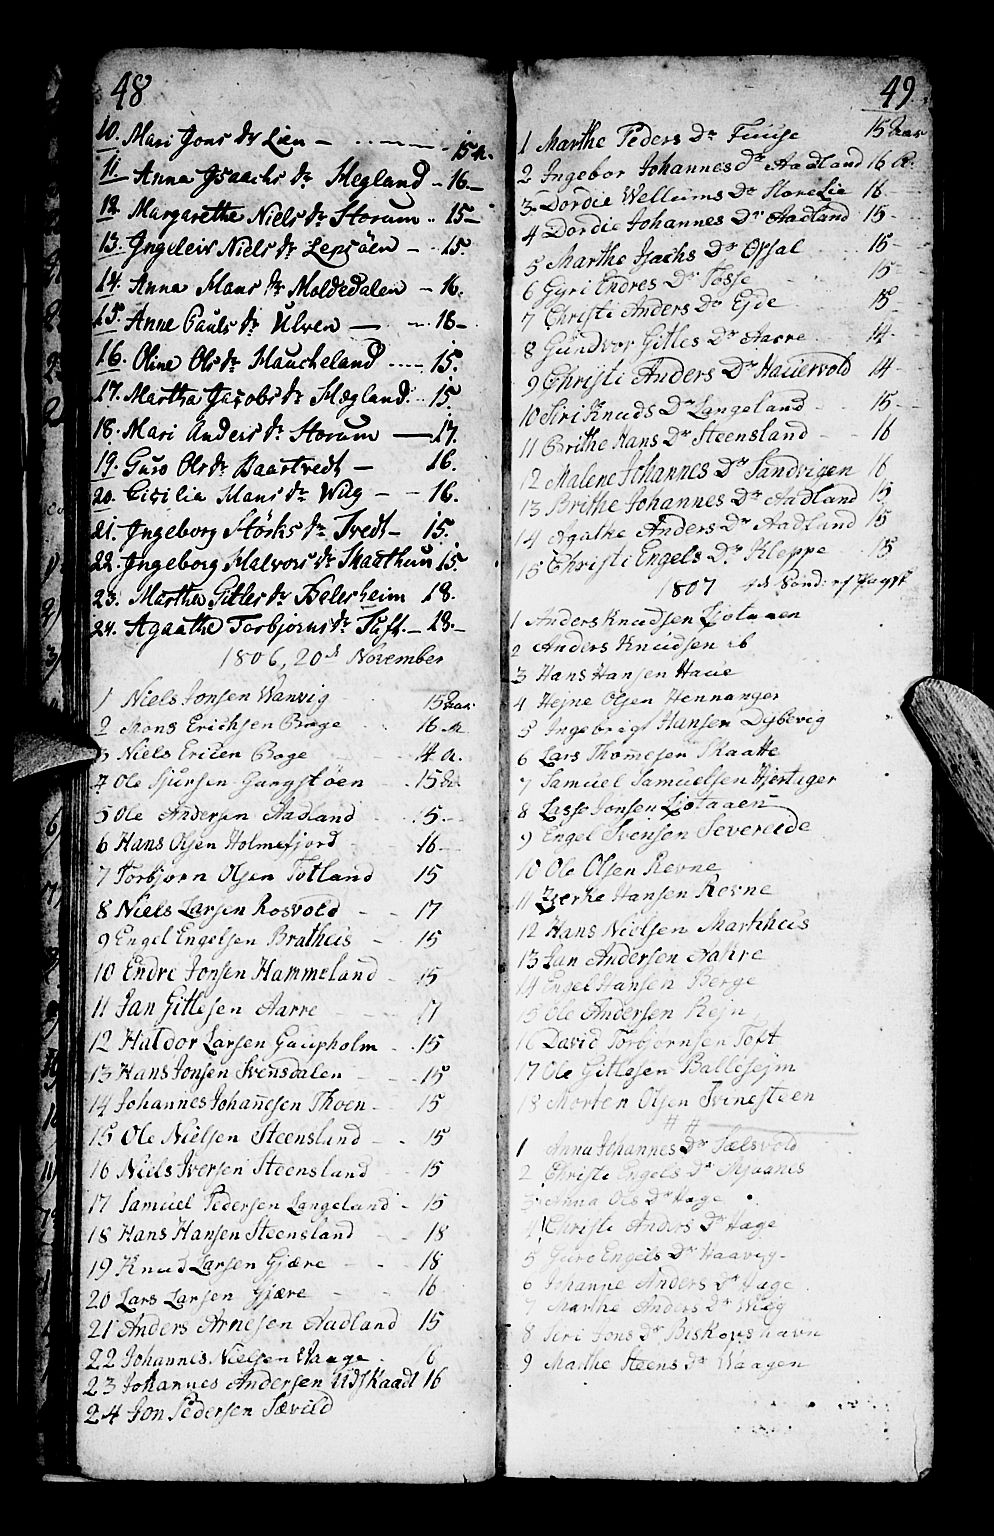 48
10. Mari Jons Dr Lien - 15 A.
11. Anna Isaachs Dr Hegland - 16 -
12. Margarethe Niels Dr Storum 15 -
13. Ingeleiv Niels Dr Lepsöen - 15.
14. Anna Mons Dr Moldedalen - 16.
15. Anne Pauls Dr Ulven - 16 -
16. Oline Ols Dr Haucheland 15.
17. Martha Jacobs Dr Hægland. 15
18. Mari Anders Dr Storum - 17.
19. Guro Ols Dr Baartvedt - 16.
20. Cicilia Mons Dr Wiig - 16.
21. Ingeborg Störks Dr Tvedt - 15.
22. Ingeborg Halvors Dr Skaathun 15.
23. Martha Gitles Dr Belesheim 18.
24. Agaathe Torbjorns Dr Tuft - 18. -
1806, 20d November
1 Niels Jonsen Wanvig 15 Aar
2 Mons Erichsen Boge 16 A.
3 Niels Ericen Boge 14 A.
4 Ole Sjursen Gungstöen 15
5 Ole Andersen Aadland 15. -
6 Hans Olsen Holmefjord 16 -
7 Torbjorn Olsen Totland 15
8 Niels Larsen Rosvold - 17
9 Engel Engelsen Brathus - 15
10 Endre Jonsen Hammeland 15
11 Jan Gitlesen Aarre 17
12 Haldor Larsen Gaupholm 15
13 Hans Jonsen Svensdalen 15
14 Johannes Johanesen Thoen 15
15 Ole Nielsen Steensland 15
16 Niels Iversen Steensland 15
17 Samuel Pedersen Langeland 15
18 Hans Hansen Steensland 18
19 Knud Larsen Gjære 18
20 Lars Larsen Gjære 16
21 Anders Arnesen Aadland 15
22 Johannes Nielsen Vaage 16
23 Johannes Andersen Udskaadt 16
24 Jon Pedersen Sævild
49.
1 Marthe Peders Dr Fuuse 15 Aar
2 Ingebor Johannes Dr Aadland 16 A.
3 Dordie Wellums Dr StoreLie 16
4 Dordie Johannes Dr Aadland 15 -
5 Marthe Isachs Dr Opsal 15 -
6 Gyri Endres Dr Tosse 15 -
7 Christi Anders Dr Ejde 15
8 Gundvor Gitles Dr Aarre 14 -
9 Christi Anders Dr Hauervold 14 -
10 Siri Knuds Dr Langeland 15 -
11 Brithe Hans Dr Steensland 16
12 Malene Johannes Dr Sandvigen 16
13 Brithe Johannes Dr Aadland 15
14 Agathe Anders Dr Aadland 15
15 Christi Engels Dr Kleppe 15
1807 4d Sönd.
1 Anders Knudsen Liotaaen
2 Anders Knudsen ib
3 Hans Hansen Haue
4 Hejne Olsen Hennanger
5 Ingebregt Hansen Dybevig
6 Lars Thomesen Skaate
7 Samuel Samuelsen Hjertiger
8 Lasse Jonsen Liotaaen
9 Engel Svensen Severeide
10 Ole Olsen Revne
11 Hansen Revne
12 Hans Nielsen Markhus
13 Jan Andersen Aakre
14 Engel Hansen Berge
15 Ole Andersen Rejn
16 David Torbjornsen Toft
17 Ole Gitlesen Ballesejm
18 Morten Olsen Tvinesteen
1 Anna Johannes Dr Sælsvold
2 Christi Engels Dr
3 Anna Ols Dr Hage
4 Christi Anders Dr Hage
5 Guro Engels Dr Vaavig
6 Johanne Anders Dr Hage
7 Marthe Anders Dr Wiig
8 Siri Jons Dr Biskopshavn
9 Marthe Steens Dr Waagen